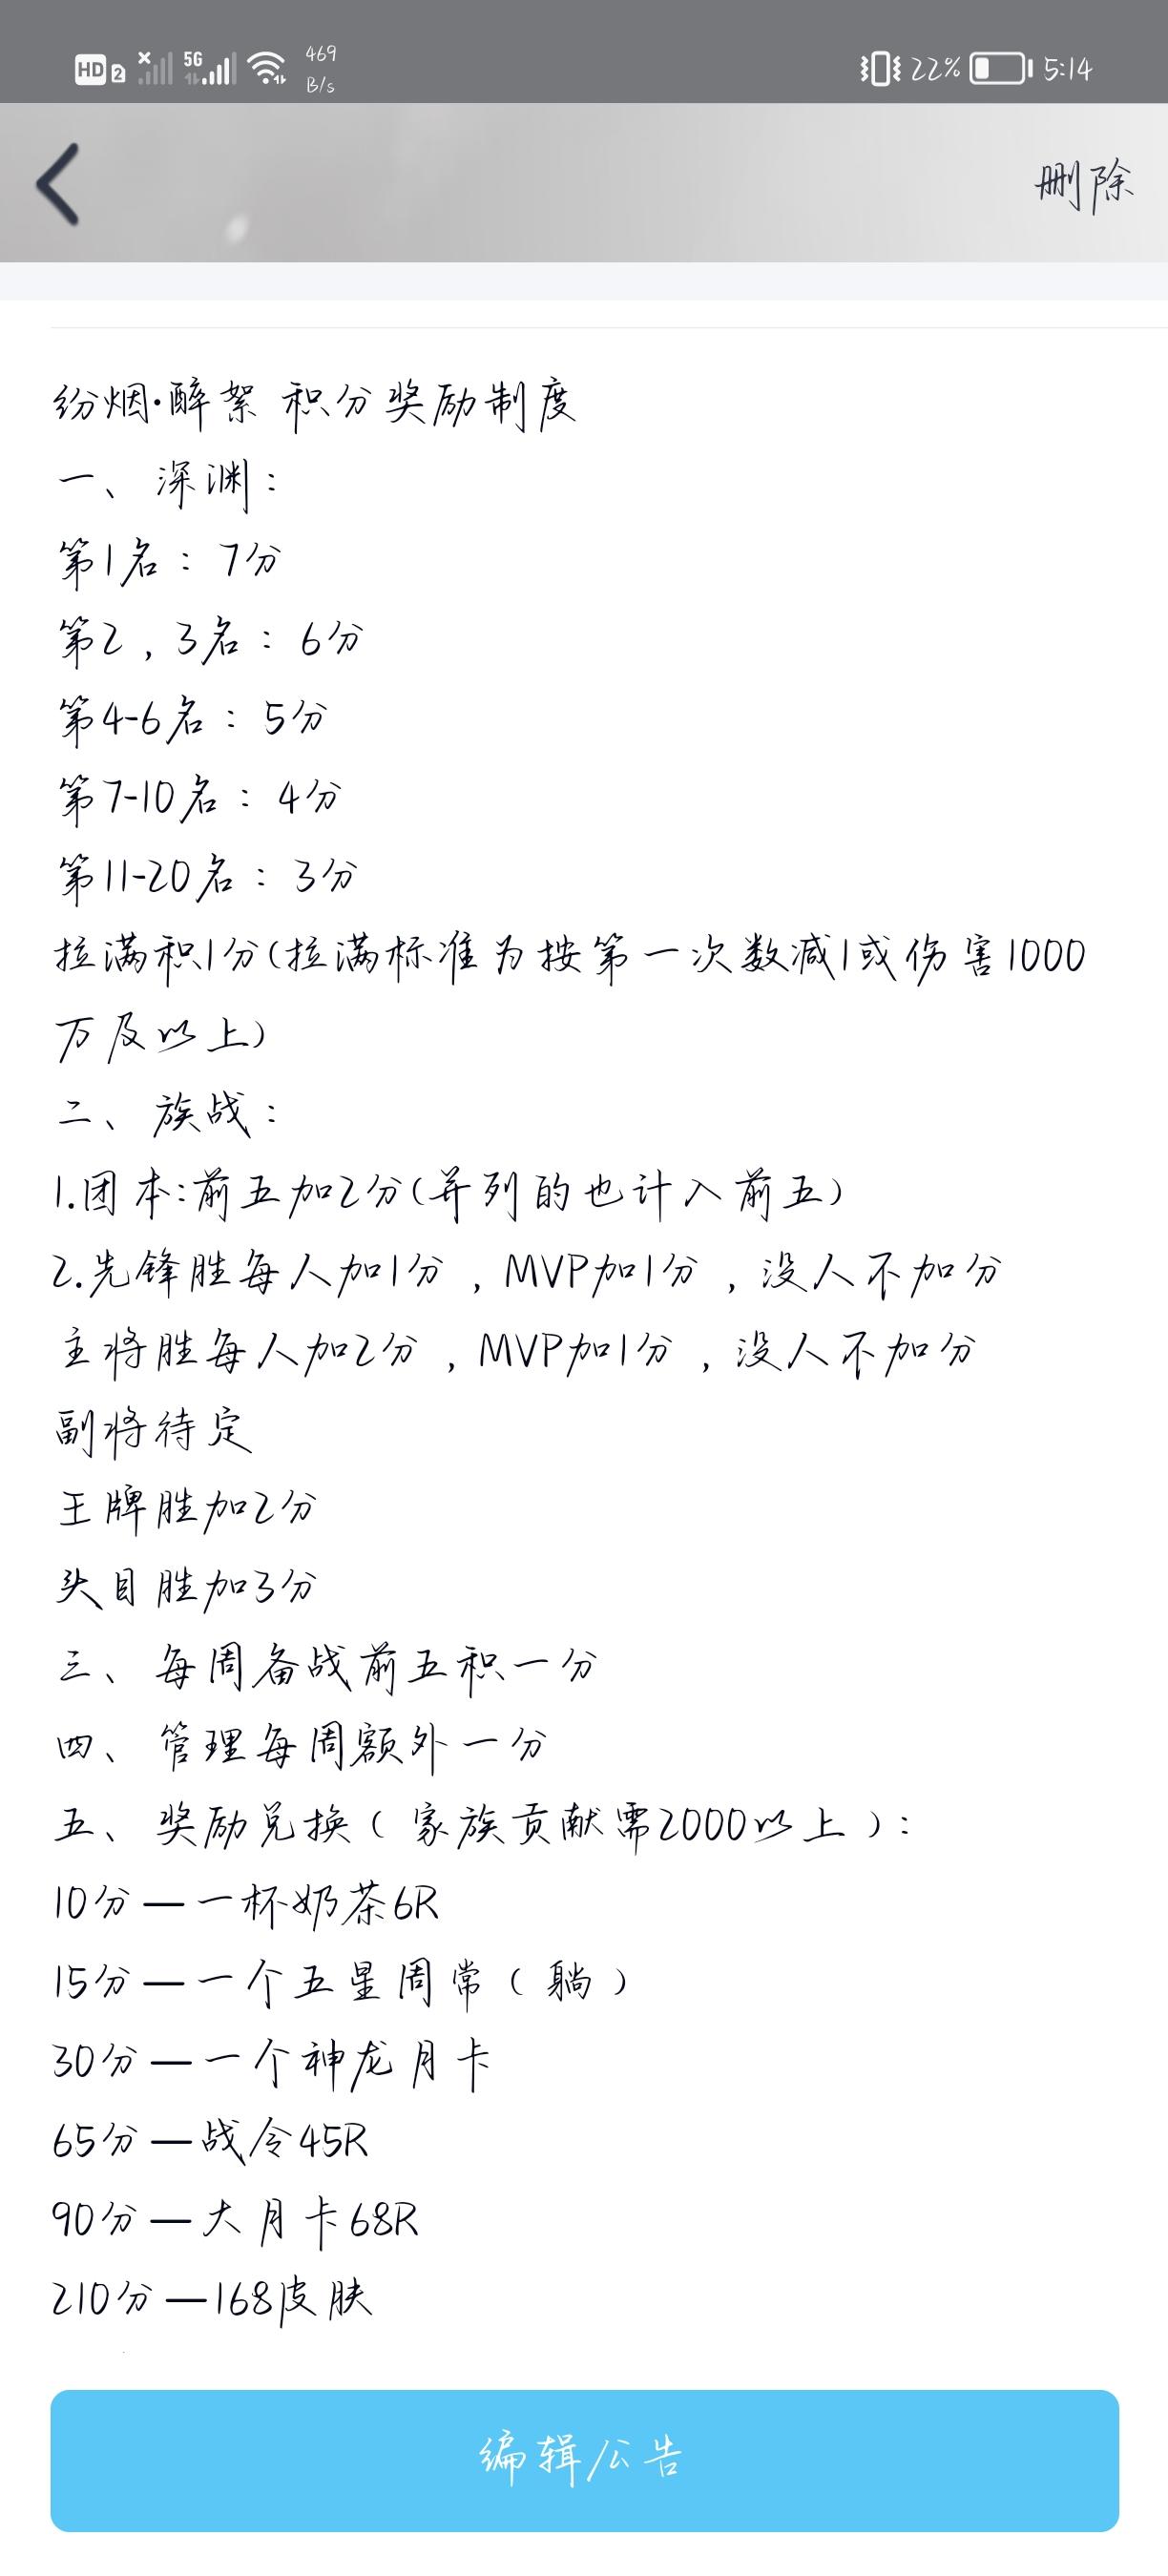 HD 2 5G 469 B/s 22% 5:14
删除
纷烟·醉絮 积分奖励制度
一、深渊：
第1名：7分
第2，3名：6分
第4-6名：5分
第7-10名：4分
第11-20名：3分
拉满积1分(拉满标准为按第一次数减1或伤害1000
万及以上)
二、族战：
1.团本:前五加2分(并列的也计入前五)
2.先锋胜每人加1分，MVP加1分，没人不加分
主将胜每人加2分，MVP加1分，没人不加分
副将待定
王牌胜加2分
头目胜加3分
三、每周备战前五积一分
四、管理每周额外一分
五、奖励兑换（家族贡献需2000以上）：
10分—一杯奶茶6R
15分—一个五星周常（躺）
30分—一个神龙月卡
65分—战令45R
90分—大月卡68R
210分—168皮肤
编辑公告